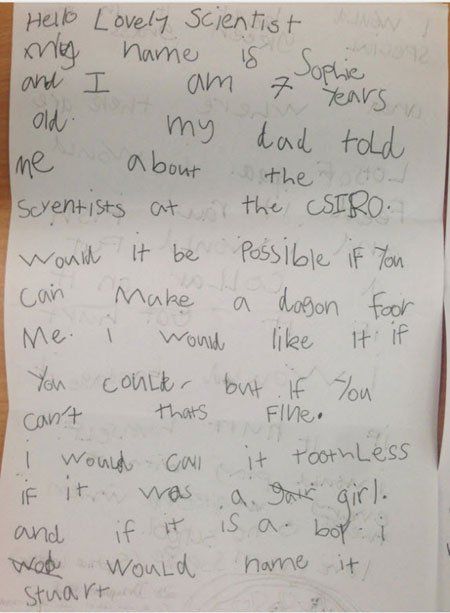 Hello Lovely Scientist
my name is Sophie
and I am 7 Years
old. my dad told
me about the
screntists at the CSIRO.
would it be Possible if You
can Make a dagon foor
Me. i would like it if
You could. but if You
can't thats Fine.
i would call it toothLess
if it was a girl.
and if it is a boy i
would name it
Stuart